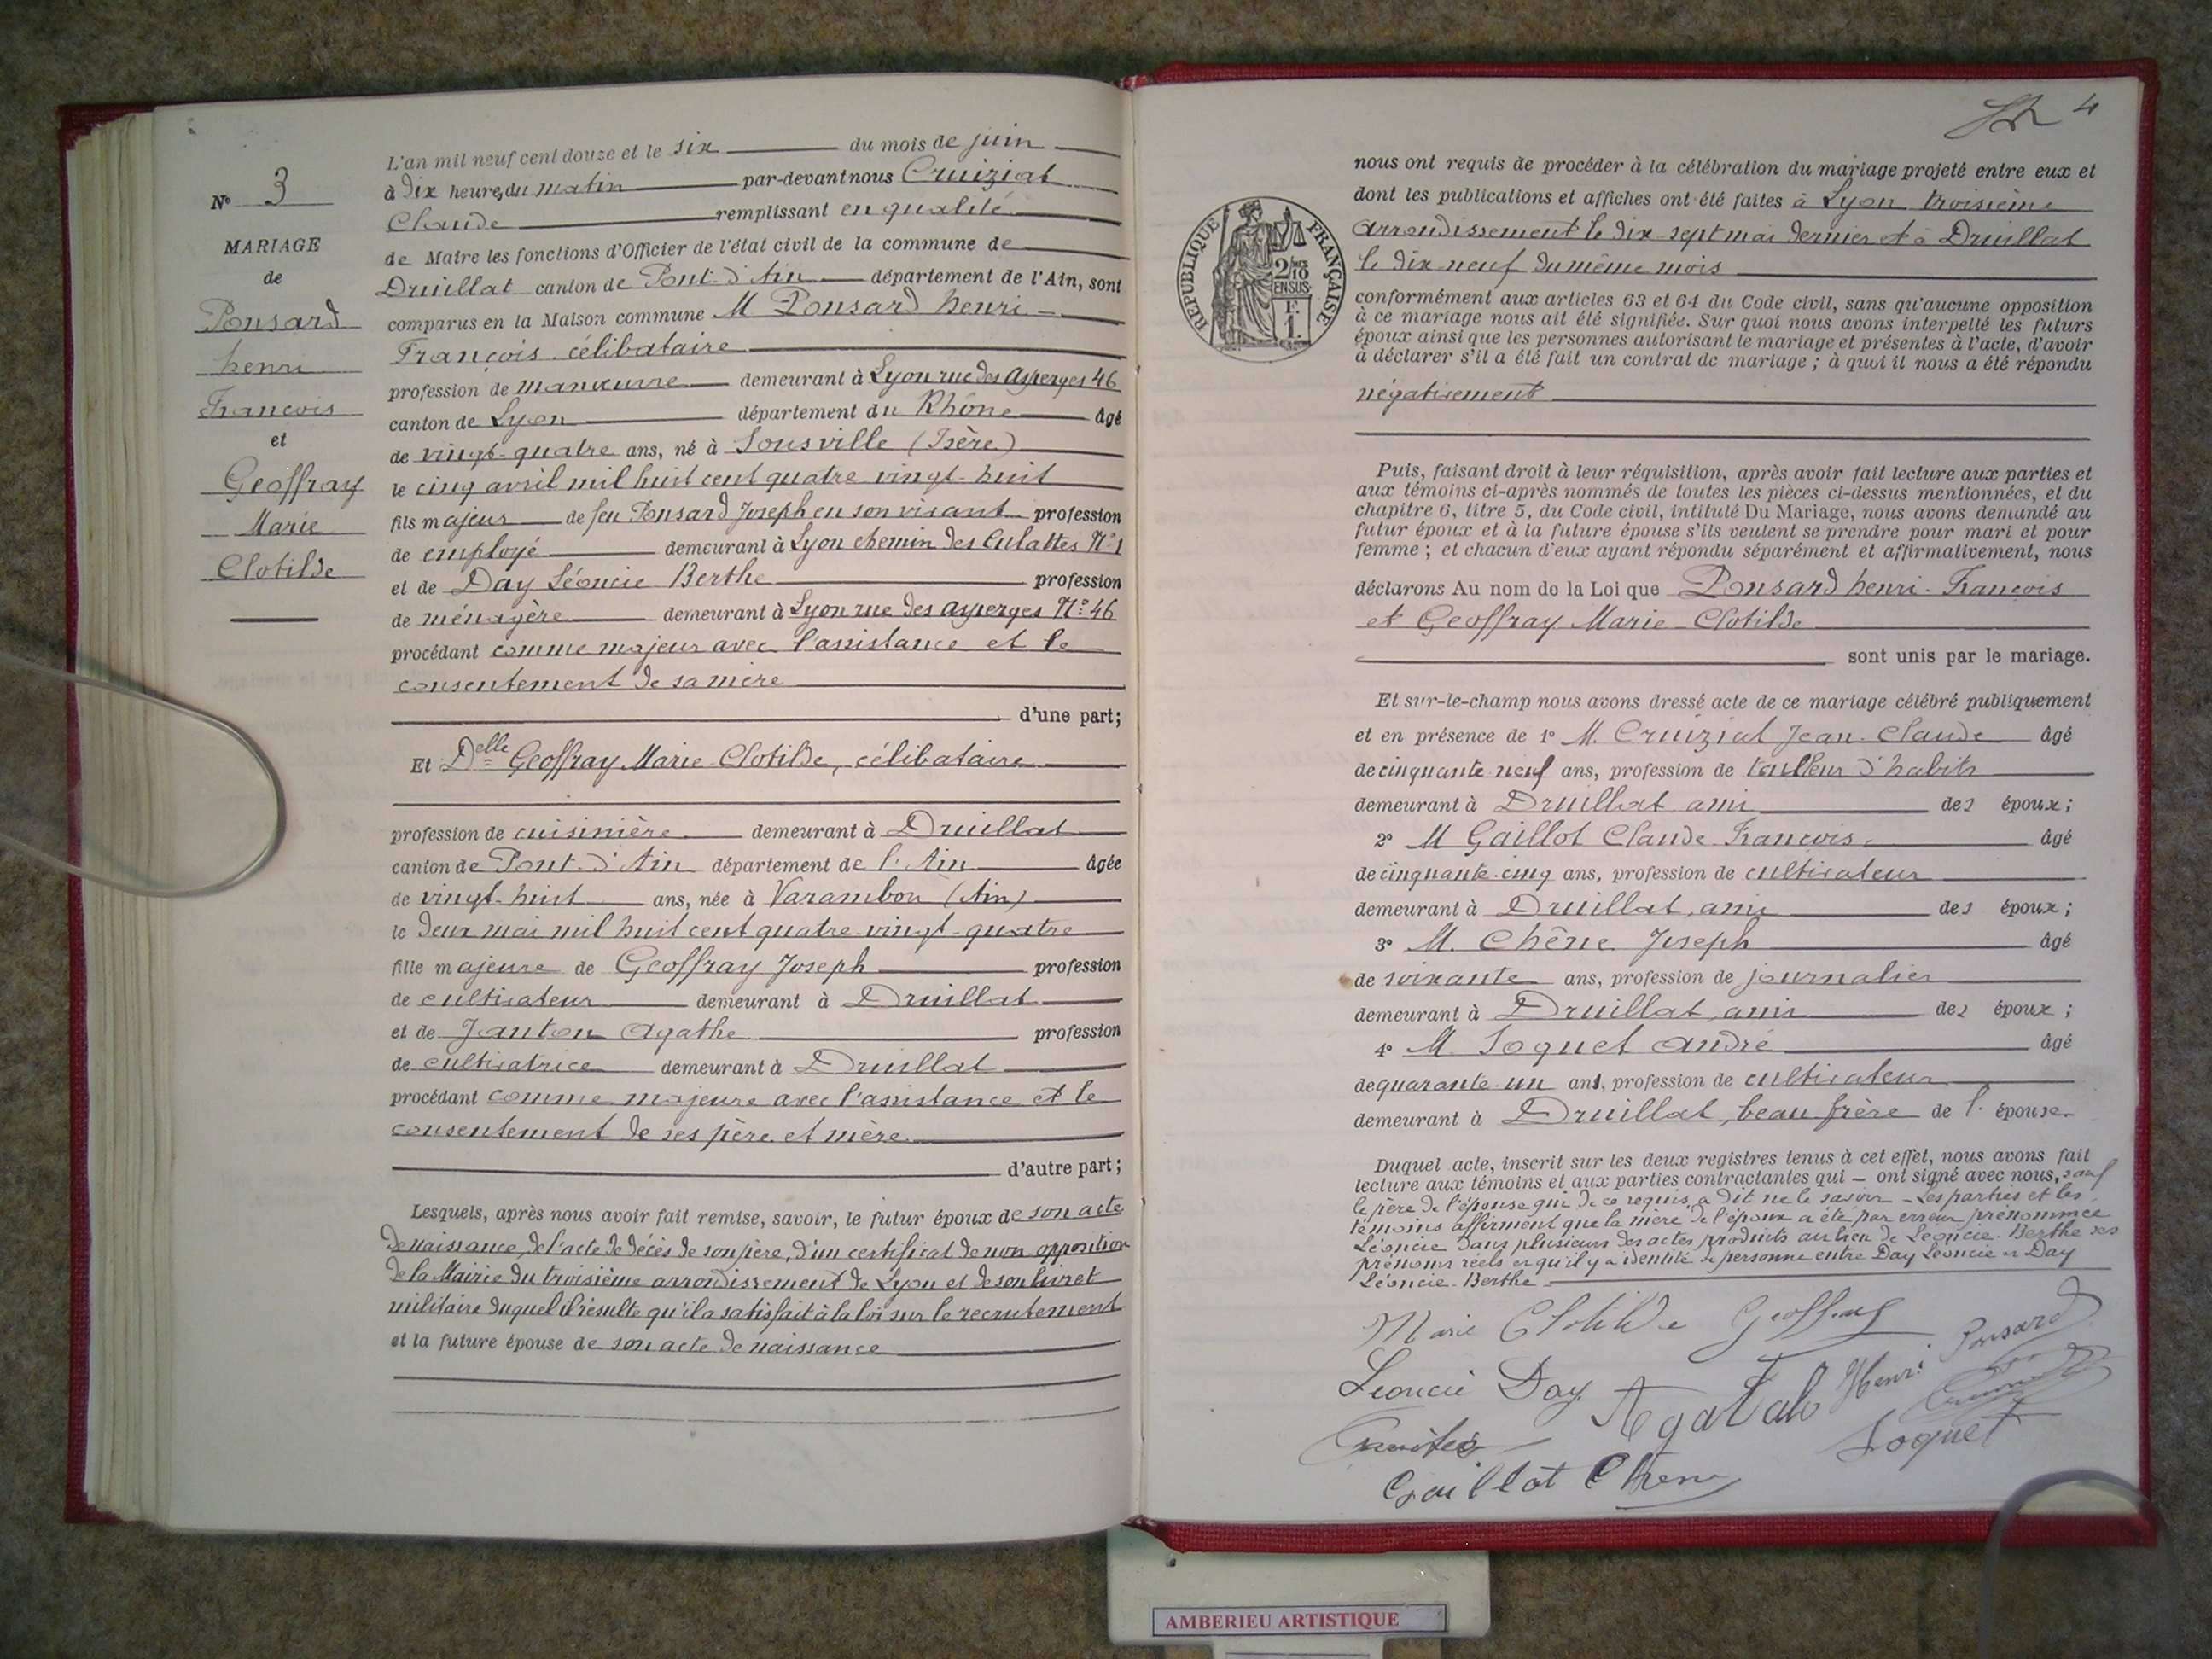 N° 3
MARIAGE
de
Ponsard
henri
François
et
Geoffray
Marie
Clotilde
L'an mil neuf cent douze et le six du mois de juin
à dix heures du matin par-devant nous Cruiziat
Claude remplissant en qualité
de Maire les fonctions d'Officier de l'état civil de la commune de
Druillat canton de Pont-d'Ain département de l'Ain, sont
comparus en la Maison commune M Ponsard henri-
François célibataire
profession de manœuvre demeurant à Lyon rue des Asperges 46
canton de Lyon département du Rhône âgé
de vingt-quatre ans, né à Sousville (Isère)
le cinq avril mil huit cent quatre vingt-huit
fils majeur de feu Ponsard Joseph en son vivant profession
de employé demeurant à Lyon chemin des Culattes N°1
et de Day Léoncie Berthe profession
de ménagère demeurant à Lyon rue des asperges N° 46
procédant comme majeur avec l'assistance et le
consentement de sa mère
d'une part;
Et Delle Geoffray Marie Clotilde, célibataire
profession de cuisinière demeurant à Druillat
canton de Pont-d'Ain département de l'Ain âgée
de vingt-huit ans, née à Varambon (Ain)
le deux mai mil huit cent quatre-vingt-quatre
fille majeure de Geoffray Joseph profession
de cultivateur demeurant à Druillat
et de Janton Agathe profession
de cultivatrice demeurant à Druillat
procédant comme majeure avec l'assistance et le
consentement de ses père et mère
d'autre part;
Lesquels, après nous avoir fait remise, savoir, le futur époux de son acte
de naissance, de l'acte de décès de son père, d'un certificat de non opposition
de la Mairie du troisième arrondissement de Lyon et de son livret
militaire duquel il résulte qu'il a satisfait à la loi sur le recrutement
et la future épouse de son acte de naissance
4
nous ont requis de procéder à la célébration du mariage projeté entre eux et
dont les publications et affiches ont été faites à Lyon troisième
arrondissement le dix-sept mai dernier et à Druillat
le dix neuf du même mois
RÉPUBLIQUE FRANÇAISE
2/10
EN SUS
F.
1.
conformément aux articles 63 et 64 du Code civil, sans qu'aucune opposition
à ce mariage nous ait été signifiée. Sur quoi nous avons interpellé les futurs
époux ainsi que les personnes autorisant le mariage et présentes à l'acte, d'avoir
à déclarer s'il a été fait un contrat de mariage; à quoi il nous a été répondu
négativement
Puis, faisant droit à leur réquisition, après avoir fait lecture aux parties et
aux témoins ci-après nommés de toutes les pièces ci-dessus mentionnées, et du
chapitre 6, titre 5, du Code civil, intitulé Du Mariage, nous avons demandé au
futur époux et à la future épouse s'ils veulent se prendre pour mari et pour
femme; et chacun d'eux ayant répondu séparément et affirmativement, nous
déclarons Au nom de la Loi que Ponsard henri-François
et Geoffray Marie-Clotilde
sont unis par le mariage.
Et sur-le-champ nous avons dressé acte de ce mariage célébré publiquement
et en présence de 1° M. Cruiziat Jean-Claude âgé
de cinquante neuf ans, profession de tailleur d'habits
demeurant à Druillat ami des époux;
2° M Gaillot Claude François âgé
de cinquante-cinq ans, profession de cultivateur
demeurant à Druillat, ami des époux;
3° M. Chêne Joseph âgé
de soixante ans, profession de journalier
demeurant à Druillat, ami des époux;
4° M. Soquet André âgé
de quarante un ans, profession de cultivateur
demeurant à Druillat, beau frère de l'épouse.
Duquel acte, inscrit sur les deux registres tenus à cet effet, nous avons fait
lecture aux témoins et aux parties contractantes qui - ont signé avec nous, sauf
le père de l'épouse qui de ce requis, a dit ne le savoir - Les parties et les
témoins affirment que la mère de l'époux a été par erreur prénommée
Léoncie dans plusieurs des actes produits au lieu de Léoncie-Berthe ses
prénoms réels et qu'il y a identité de personne entre Day Léoncie et Day
Léoncie-Berthe
Marie Clotilde Geoffray
Léoncie Day Henri Ponsard
Soquet
Gaillot Chene
AMBERIEU ARTISTIQUE